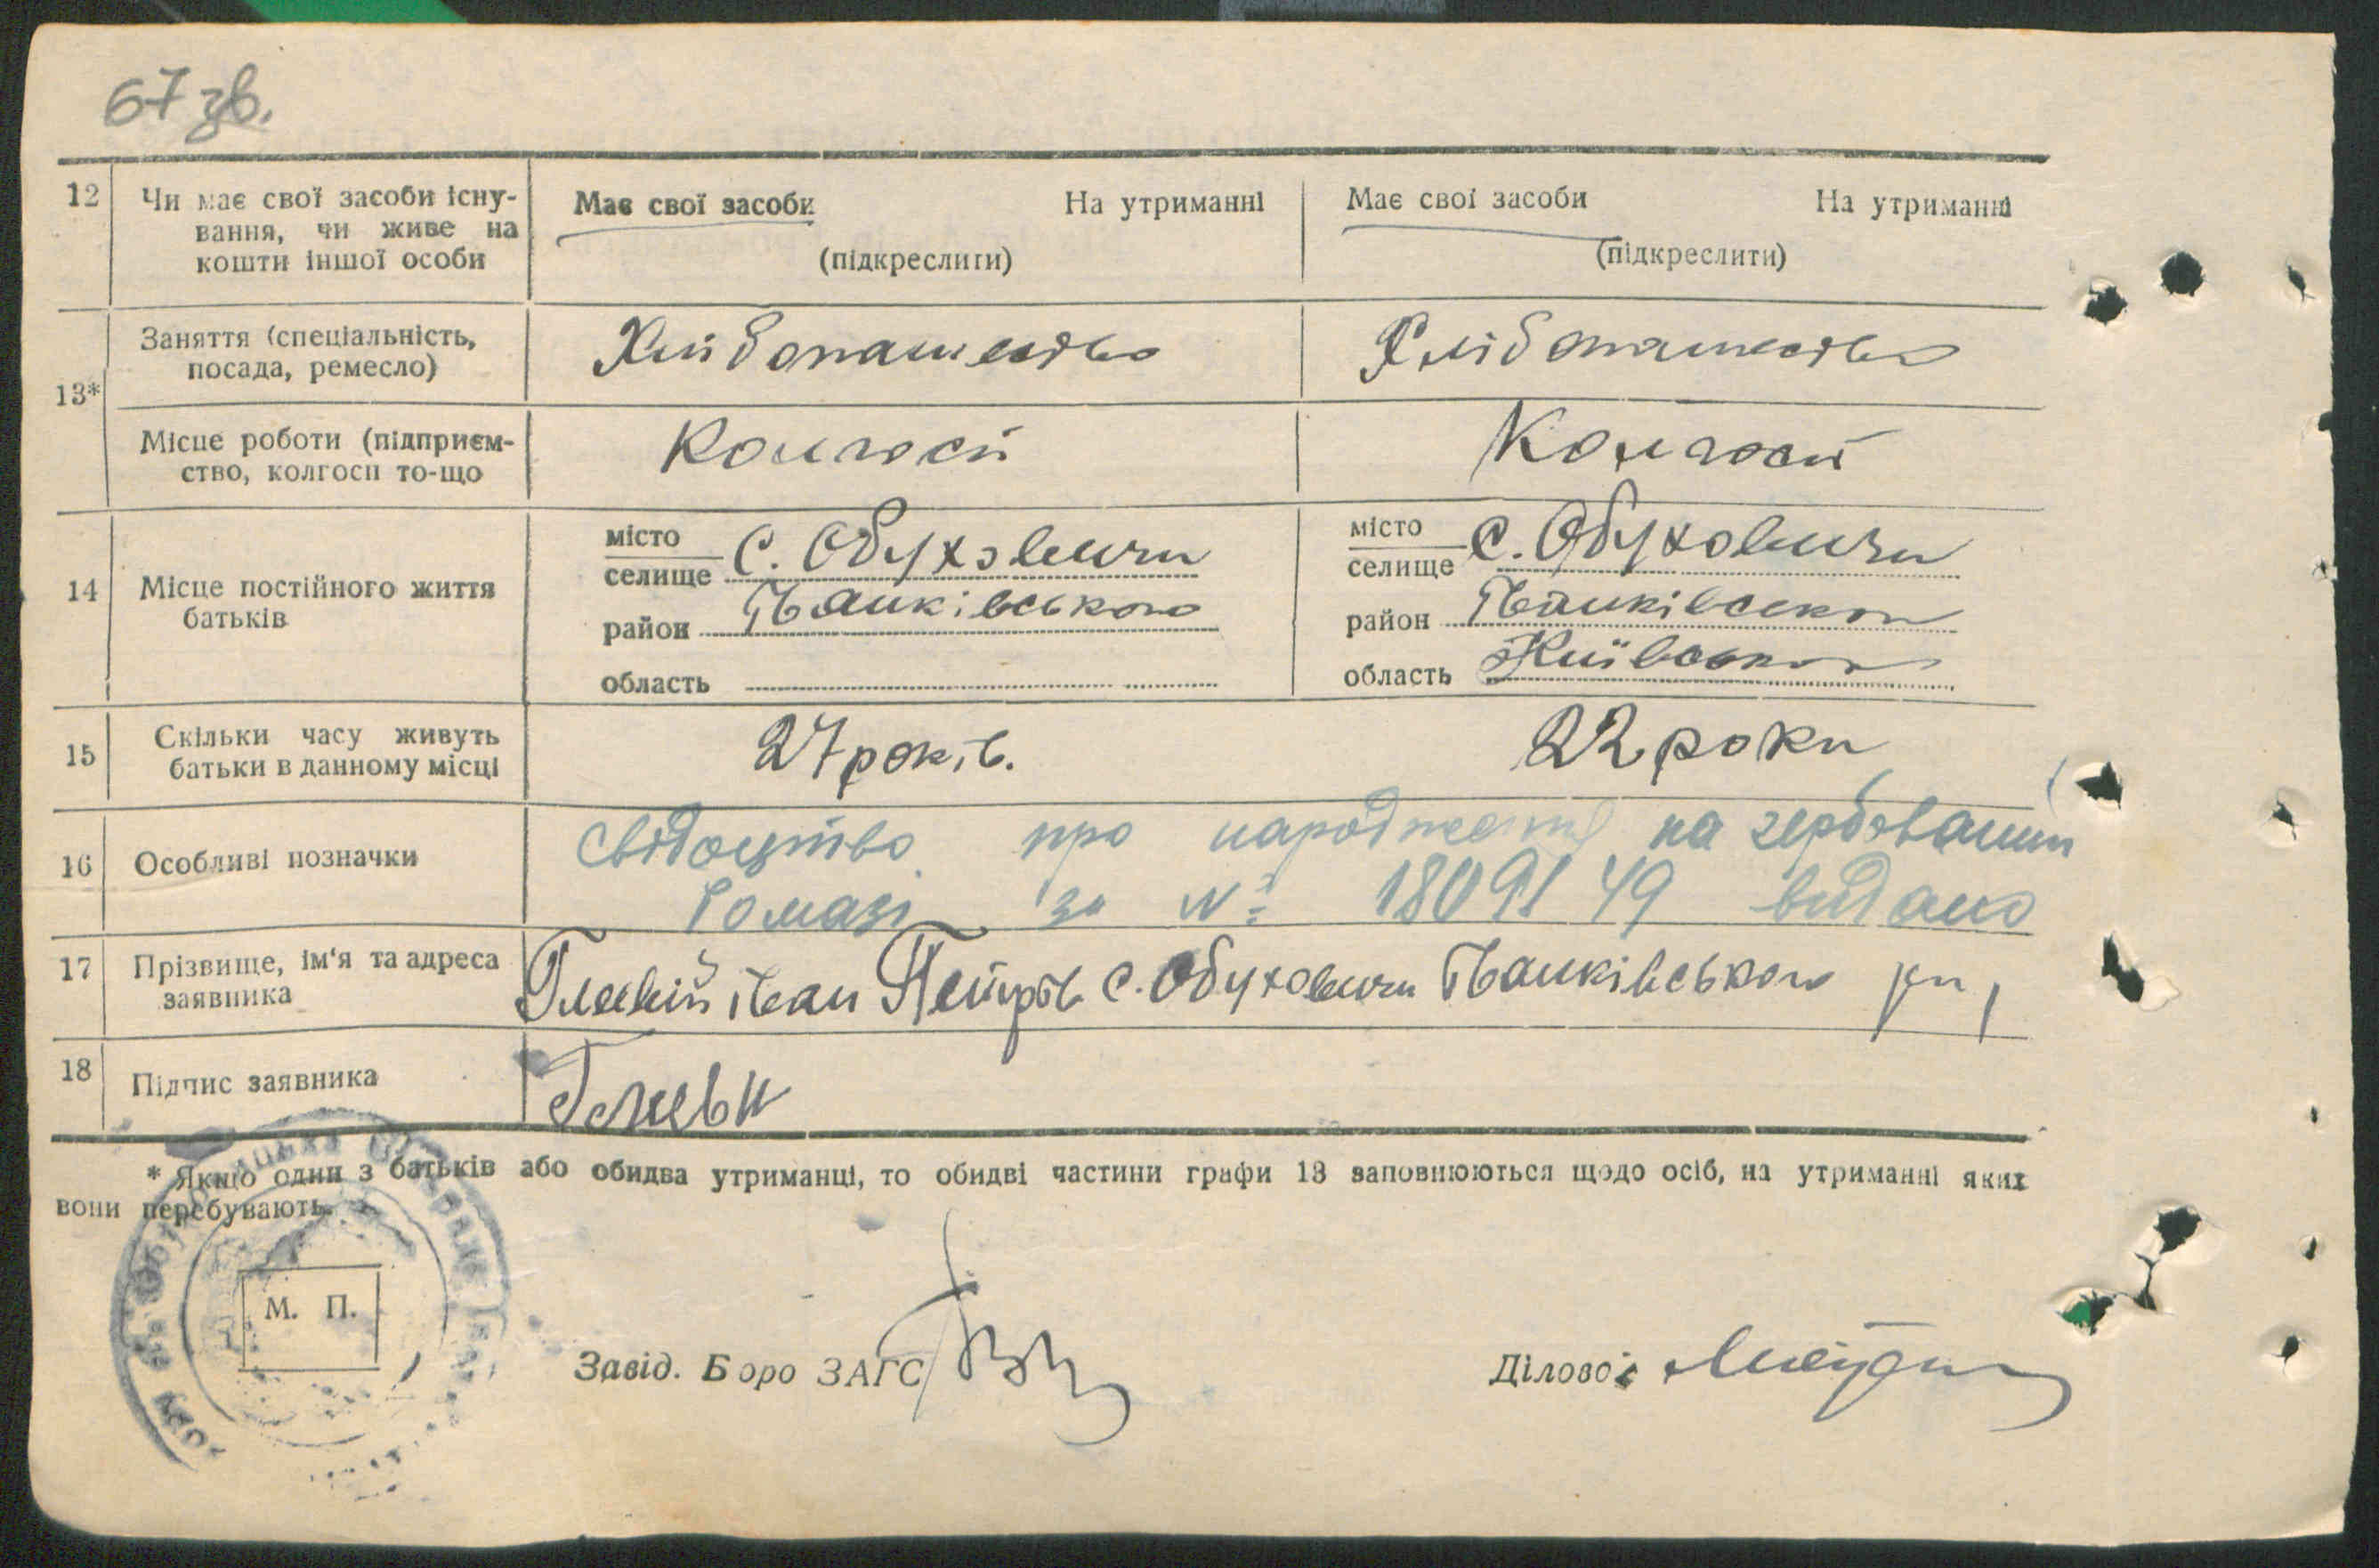 67 зв.
12 Чи має свої засоби існу- Має свої засоби На утриманні Має свої засоби На утриманні
вання, чи живе на
кошти іншої особи (підкреслити) (підкреслити)
Заняття (спеціальність, Хлібопашество Хлібопашество
посада, ремесло)
13*
Місце роботи (підприєм- Колгосп Колгосп
ство, колгосп то-що
місто С. Обуховичи місто с. Обуховичи
селище селище
14 Місце постійного життя район Іванківського район Іванківського
батьків
область область Київської
15 Скільки часу живуть 27 років. 22 роки
батьки в данному місці
свідоцтво про народження на гербованим
16 Особливі позначки
за № 1809149 видано
17 Прізвище, ім'я та адреса Іван Петров с. Обуховичи Іванківського рн,
заявника
18 Підпис заявника
* Якщо один з батьків або обидва утриманці, то обидві частини графи 13 заповнюються щодо осіб, на утриманні яких
вони перебувають.
М. П.
Завід. Боро ЗАГС Діловод